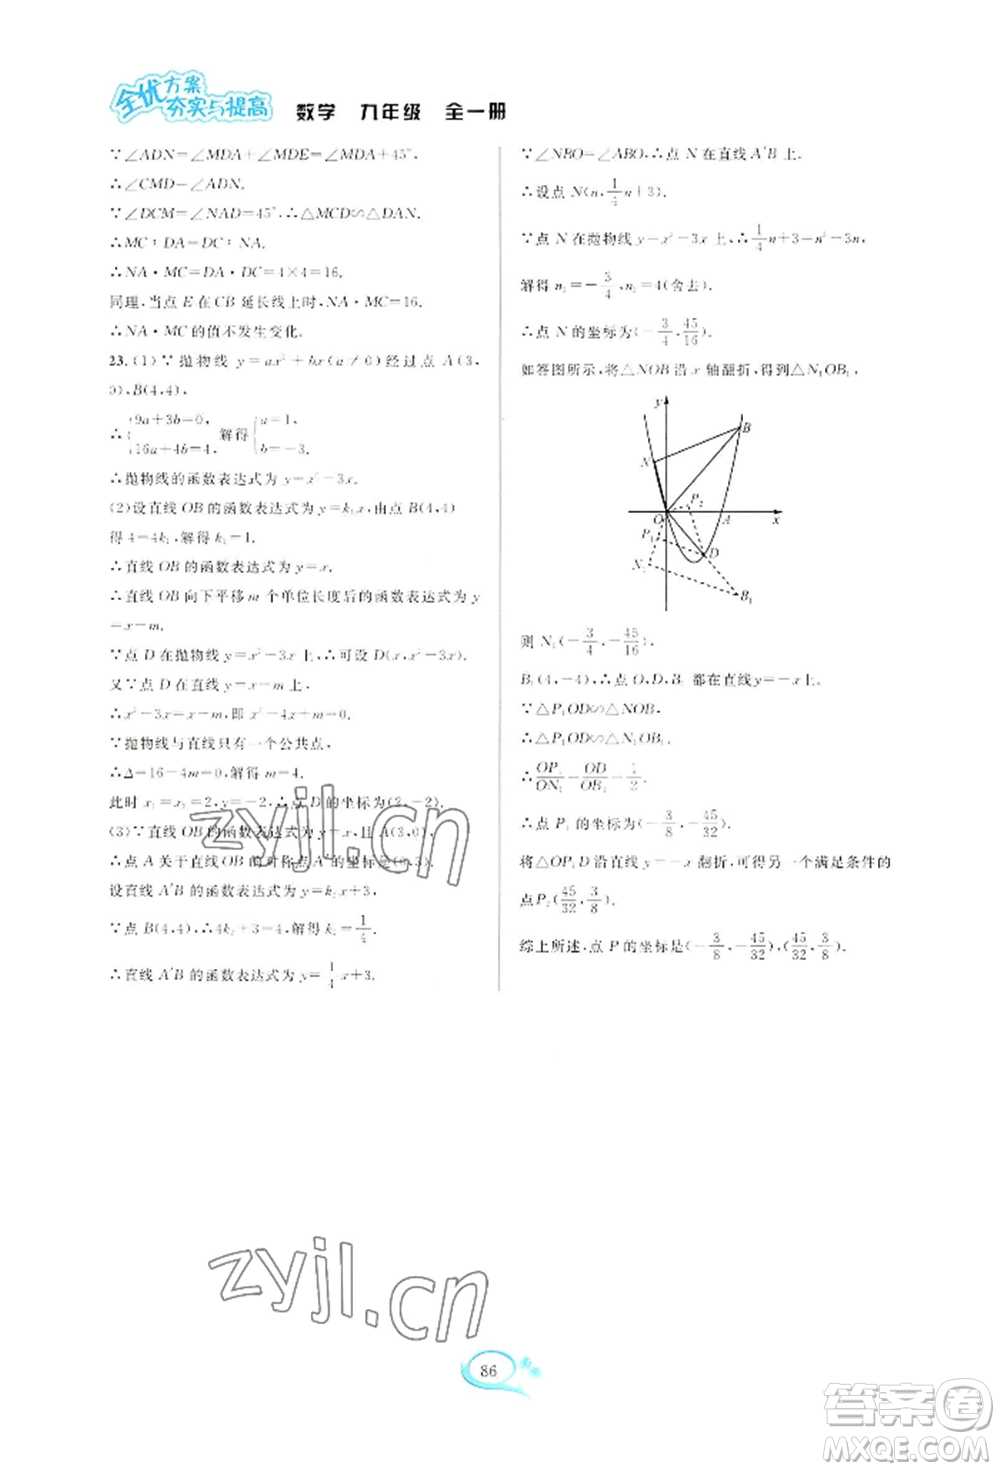 全优方案
夯实与提高
数学 九年级 全一册
∵∠ADN=∠MDA+∠MDE=∠MDA+45°,
∴∠CMD=∠ADN.
∵∠DCM=∠NAD=45°,∴△MCD∽△DAN.
∴MC:DA=DC:NA.
∴NA·MC=DA·DC=4×4=16.
同理,当点E在CB延长线上时,NA·MC=16.
∴NA·MC的值不发生变化.
23.(1)∵抛物线 y=ax²+bx(a≠0)经过点A(3,
0),B(4,4),
∴{9a+3b=0, 16a+4b=4, 解得{a=1, b=-3.
∴抛物线的函数表达式为y=x²-3x.
(2)设直线OB的函数表达式为y=k₁x,由点B(4,4)
得4=4k₁,解得k₁=1.
∴直线OB的函数表达式为y=x.
∴直线OB向下平移m个单位长度后的函数表达式为y
=x-m.
∵点D在抛物线y=x²-3x上,∴可设D(x,x²-3x).
又∵点D在直线y=x-m上,
∴x²-3x=x-m,即x²-4x+m=0.
∵抛物线与直线只有一个公共点,
∴Δ=16-4m=0,解得m=4.
此时x₁=x₂=2,y=-2,∴点D的坐标为(2,-2).
(3)∵直线OB的函数表达式为y=x,且A(3,0),
∴点A关于直线OB的对称点A'的坐标是(0,3).
设直线A'B的函数表达式为y=k₂x+3,
∵点B(4,4),∴4k₂+3=4,解得k₂=1/4.
∴直线A'B的函数表达式为y=1/4x+3.
∵∠NBO=∠ABO,∴点N在直线A'B上.
∴设点N(n,1/4n+3).
∵点N在抛物线y=x²-3x上,∴1/4n+3=n²-3n,
解得n₁=-3/4,n₂=4(舍去).
∴点N的坐标为(-3/4,45/16).
如答图所示,将△NOB沿x轴翻折,得到△N₁OB₁,
y
B
N
P₂
O
A
x
P₁
D
N₁
B₁
则N₁(-3/4,-45/16).
B₁(4,-4),∴点O,D,B₁都在直线y=-x上.
∵△P₁OD∽△NOB,
∴△P₁OD∽△N₁OB₁.
∴OP₁/ON₁=OD/OB₁=1/2.
∴点P₁的坐标为(-3/8,-45/32).
将△OP₁D沿直线y=-x翻折,可得另一个满足条件的
点P₂(45/32,3/8).
综上所述,点P的坐标是(-3/8,-45/32),(45/32,3/8).
zyjl.cn
zyjl.cn
86
答案圈
MXQE.COM